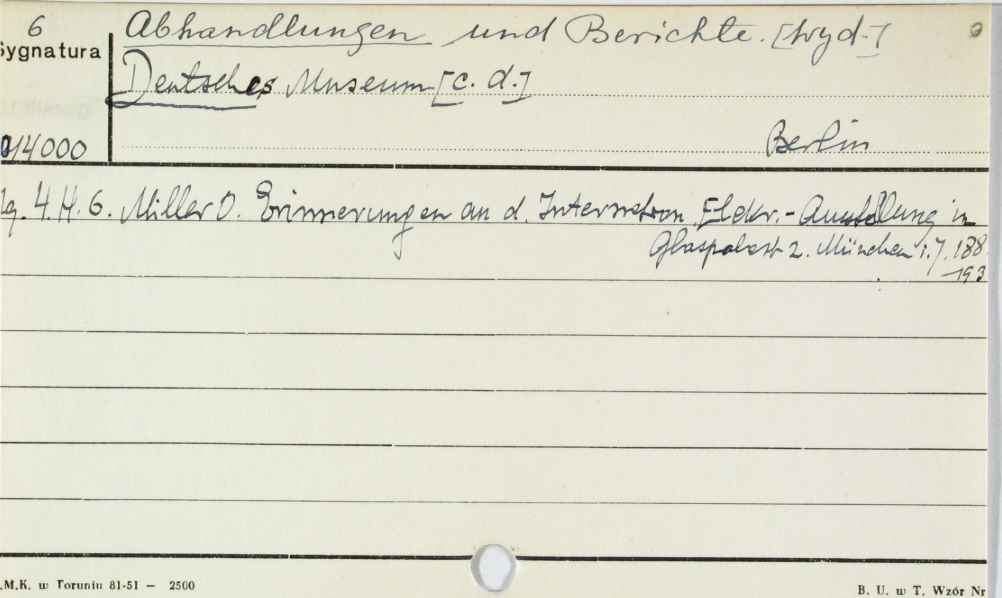 6
Sygnatura
Abhandlungen und Berichte. [wyd.]
Deutsches Museum [c. d.]
Berlin
014000
Jg. 4. H. 6. Miller O. Erinnerungen an d. Internation. Elektr.-Ausstellung in
Glaspalast z. München 1.7.188
-193
.M.K. w Toruniu 81-51 — 2500
B. U. w T. Wzór Nr